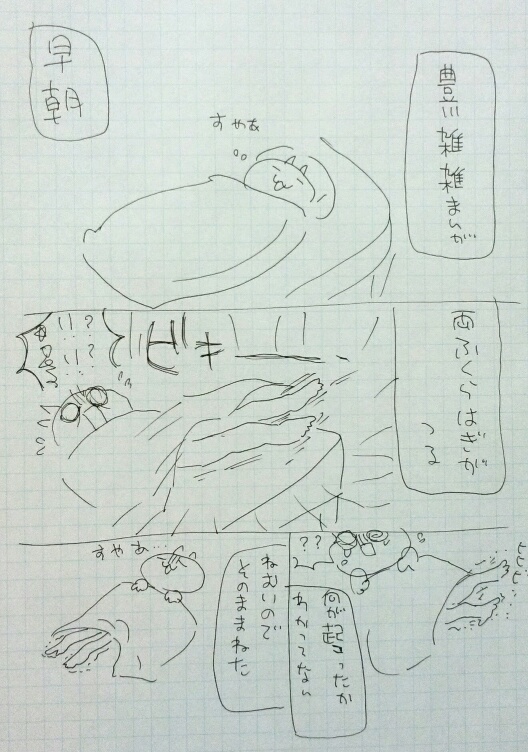 豊川雑雑まんが
早朝
すやぁ
両ふくらはぎが
つる
ビキーーー
？
？
何が起こったか
わかってない
？？
ビビビ
ねむいので
そのままねた
すやぁ…